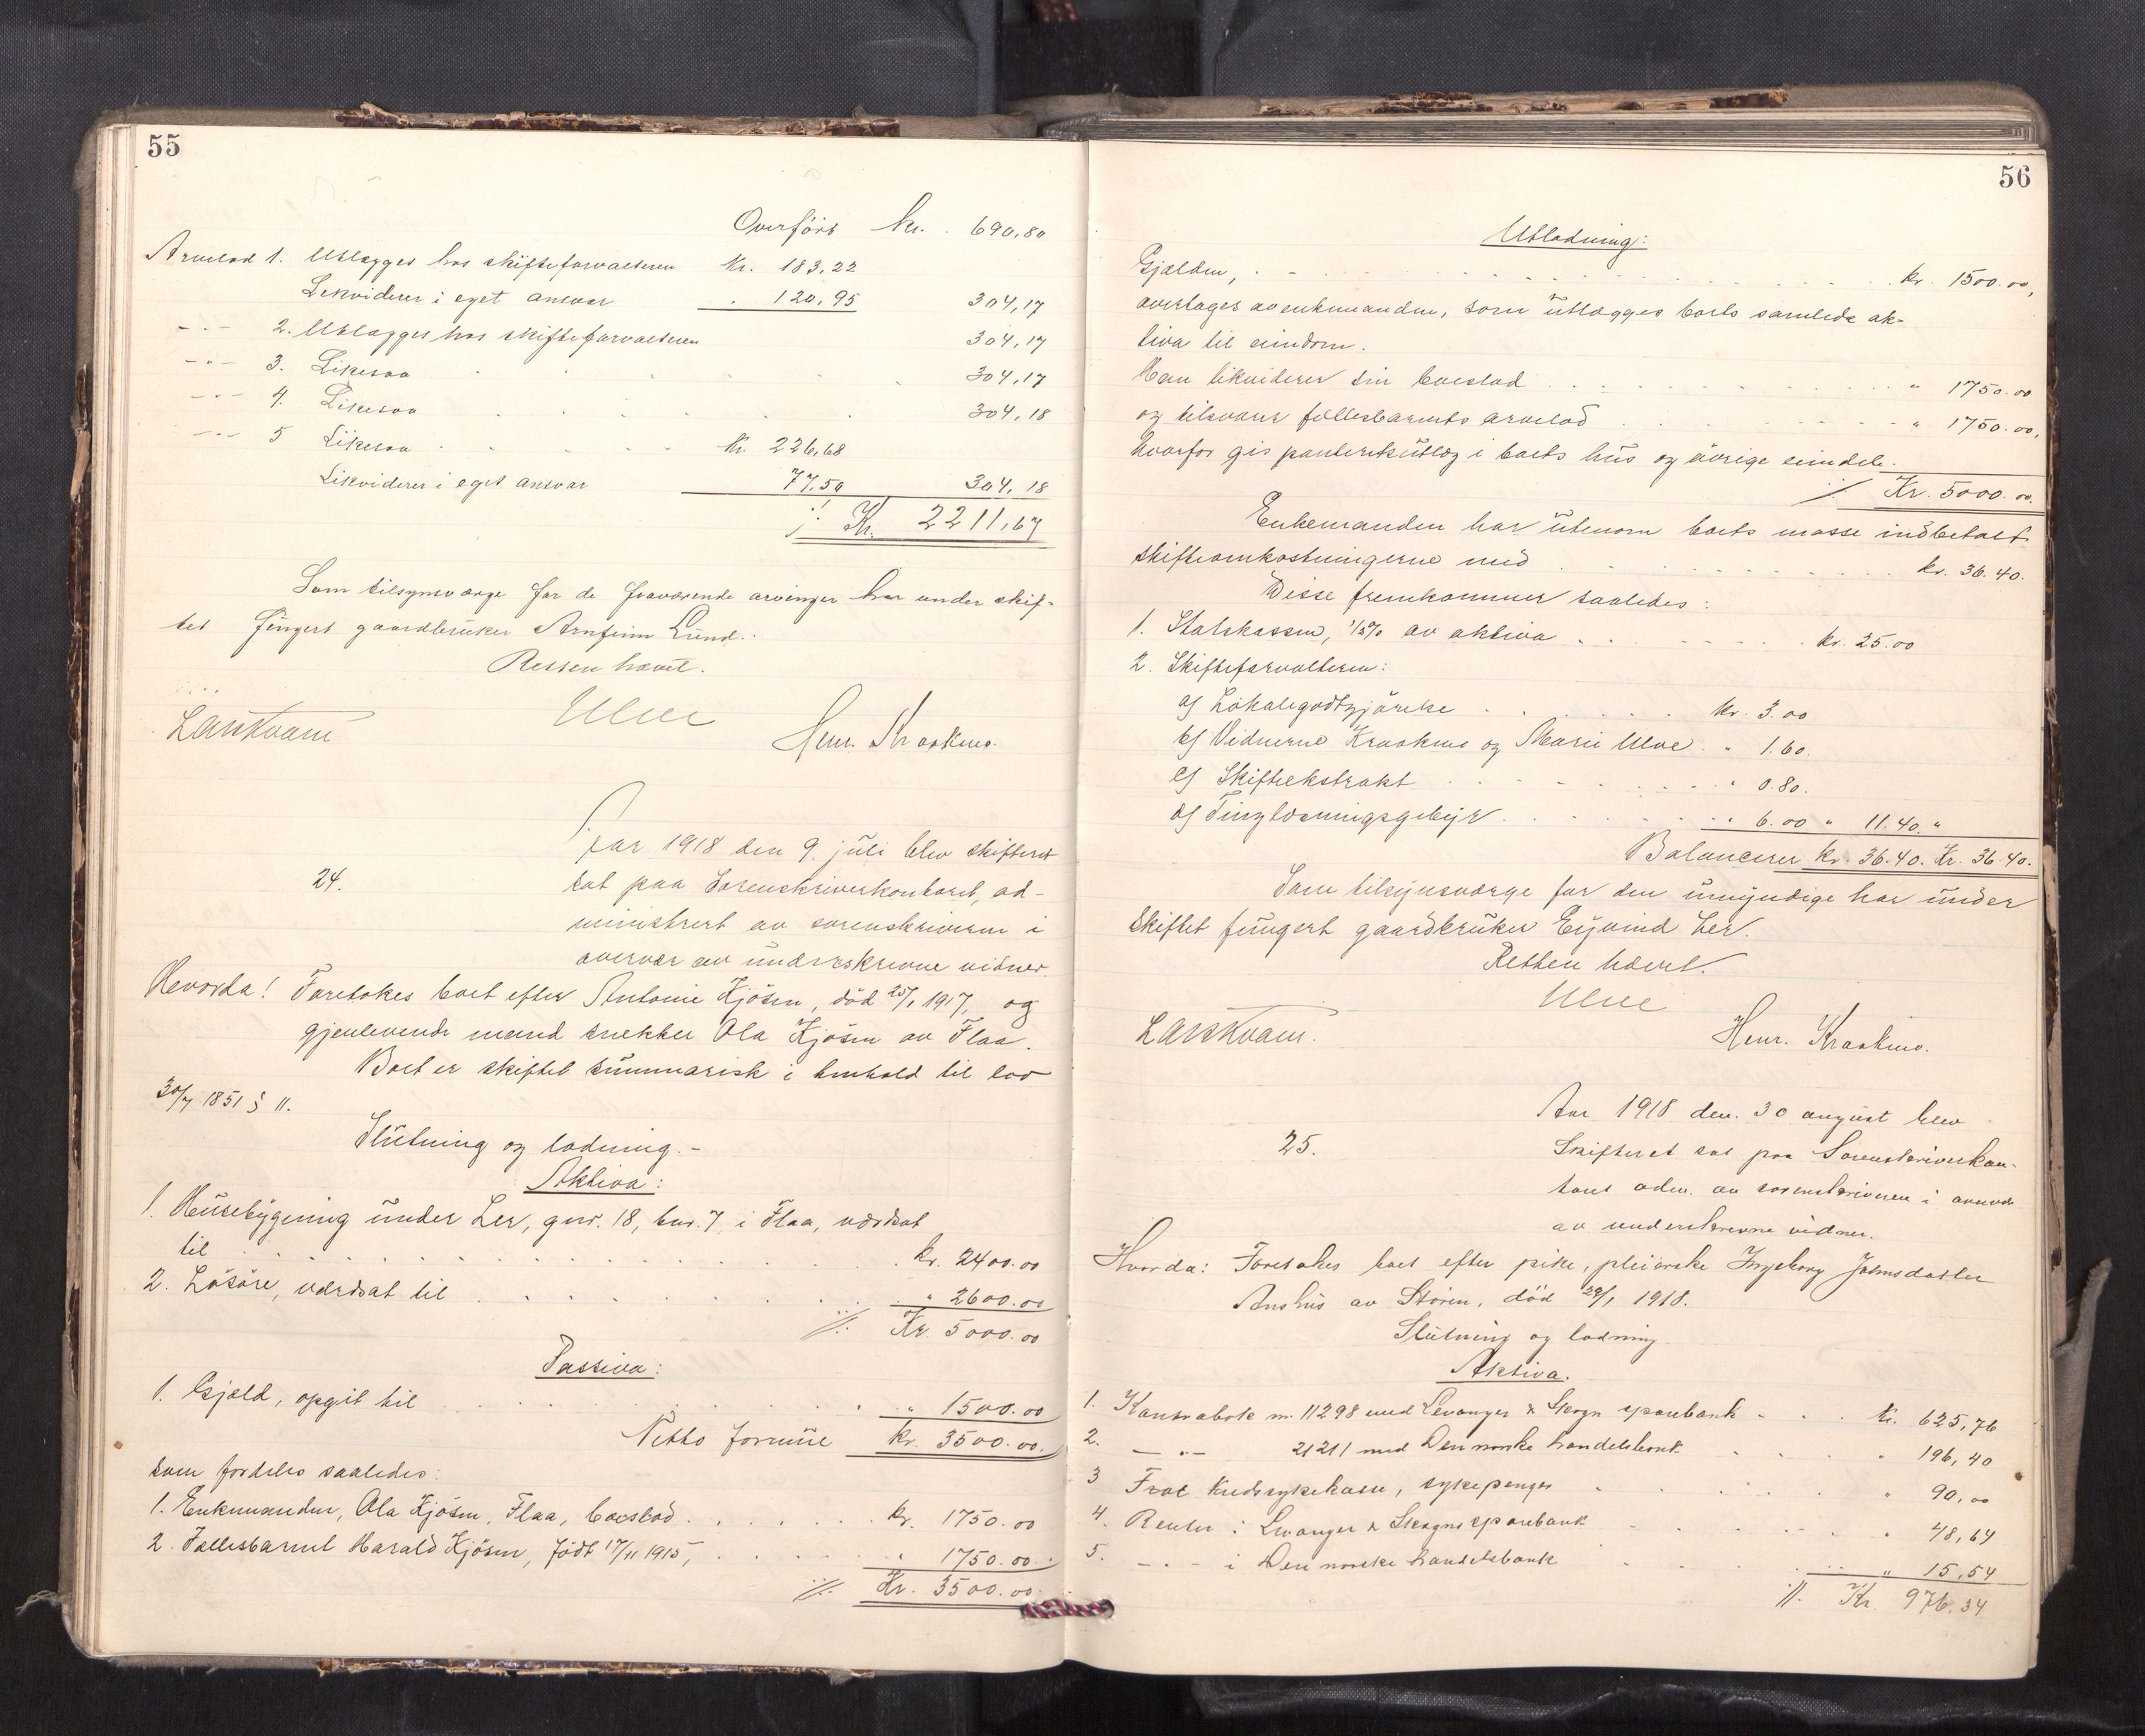 55
Overført kr. 690,80
Arvelod 1. Utlægges hos skifteforvalteren kr. 183,22
Likviderer i eget ansvar " 120,95 304,17
-"- 2. Utlægges hos skifteforvalteren 304,17
-"- 3. Likesaa 304,17
-"- 4. Likesaa 304,18
-"- 5 Likesaa kr. 226,68
Likviderer i eget ansvar 77,50 304,18
Kr. 2211,67
Som tilsynsværge for de fraværende arvinger har under skif-
tet fungert gaardbruker Arnfinn Lund.
Retten hævet.
Ulve
Lars Kvam Henr. Kraakmo.
24.
Aar 1918 den 9. juli blev skifteret
sat paa Sorenskriverkontoret, ad-
ministrert av sorenskriveren i
overvær av underskrevne vidner.
Hvorda! Foretokes boet efter Antonie Kjøsen, død 25/1 1917, og
gjenlevende mand snekker Ola Kjøsen av Flaa.
Boet er skiftet summarisk i henhold til lov
30/7 1851 § 11.
Slutning og lodning.-
Aktiva:
1. Husebygning under Ler, gnr. 18, bnr. 7 i Flaa, værdsat
til kr. 2400.00
2. Løsøre, værdsat til " 2600.00
Kr. 5000.00
Passiva:
1. Gjæld, opgit til " 1500.00
Netto formue kr. 3500.00.
som fordeles saaledes:
1. Enkemanden, Ola Kjøsen, Flaa, boeslod kr. 1750.00
2. Fællesbarnet Harald Kjøsen, født 17/11 1915, " 1750.00.
Kr. 3500.00.
56
Utlodning:
Gjælden, kr. 1500.00,
overtages av enkemanden, som utlægges boets samlede ak-
tiva til eiendom.
Han likviderer sin boeslod " 1750.00
og tilsvarer fællesbarnets arvelod " 1750.00,
hvorfor gis panterekutlæg i boets hus og øvrige eiendele.
Kr. 5000.00.
Enkemanden har utenom boets masse indbetalt
skifteomkostningerne med kr. 36.40.
Disse fremkommer saaledes:
1. Statskassen, 1/2% av aktiva kr. 25.00
2. Skifteforvalteren:
a) Lokalegodtgjørelse kr. 3.00
b) Vidnerne Kraakmo og Marie Ulve " 1.60.
c) Skifteekstrakt " 0.80.
d) Tinglæsningsgebyr " 6.00 " 11.40. "
Balancerer kr. 36.40. Kr. 36.40.
Som tilsynsværge for den umyndige har under
skiftet fungert gaardbruker Eyvind Ler.
Retten hævet.
Ulve
Lars Kvam. Henr. Kraakmo.
25.
Aar 1918 den 30 august blev
Skifteret sat paa Sorenskriverkon-
toret adm. av sorenskriveren i overvær
av underskrevne vidner.
Hvorda: Foretokes boet efter pike, pleierske Ingeborg Johnsdatter
Anshus av Støren, død 29/1 1918.
Slutning og lodning
Aktiva.
1. Kontrabok nr. 11298 med Levanger & Skogn sparebank kr. 625,76
2. -"- 21211 med Den norske handelsbank " 196,40
3 Fra Kredssykekasse, sykepenger " 90,00
4. Renter i Levanger & Skogns sparebank " 48,64
5. -"- i Den norske handelsbank " 15,54
Kr. 976,34